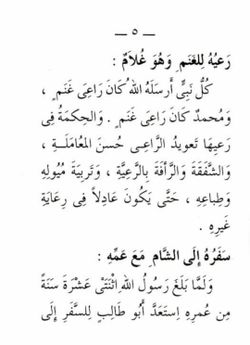 — ٥ —
رَعيُهُ لِلغَنَمِ وَهُوَ غُلاَمٌ :
كُلُّ نَبِيٍّ أَرسَلَهُ اللهُ كَانَ رَاعِىَ غَنَمٍ ،
وَمُحمدٌ كَانَ رَاعِىَ غَنَمٍ . وَالحِكمَةُ فِى
رَعيِهَا تَعوِيدُ الرَّاعِى حُسنَ المُعَامَلَــةِ ،
وَالشَّفَقَةَ وَالرَّأفَةَ بِالرَّعِيَّةِ ، وَتَربِيَةُ مُيُولِهِ
وَطِبَاعِهِ ، حَتَّى يَكُونَ عَادِلاً فِى رِعَايَةِ
غَيرِهِ .
سَفَرُهُ إِلَى الشَّامِ مَعَ عَمِّهِ :
وَلَمَّا بَلَغَ رَسُولُ اللهِ اثْنَتَىْ عَشْرَةَ سَنَةً
مِن عُمرِهِ اِستَعَدَّ أَبُو طَالِبٍ لِلسَّفَرِ إِلَى